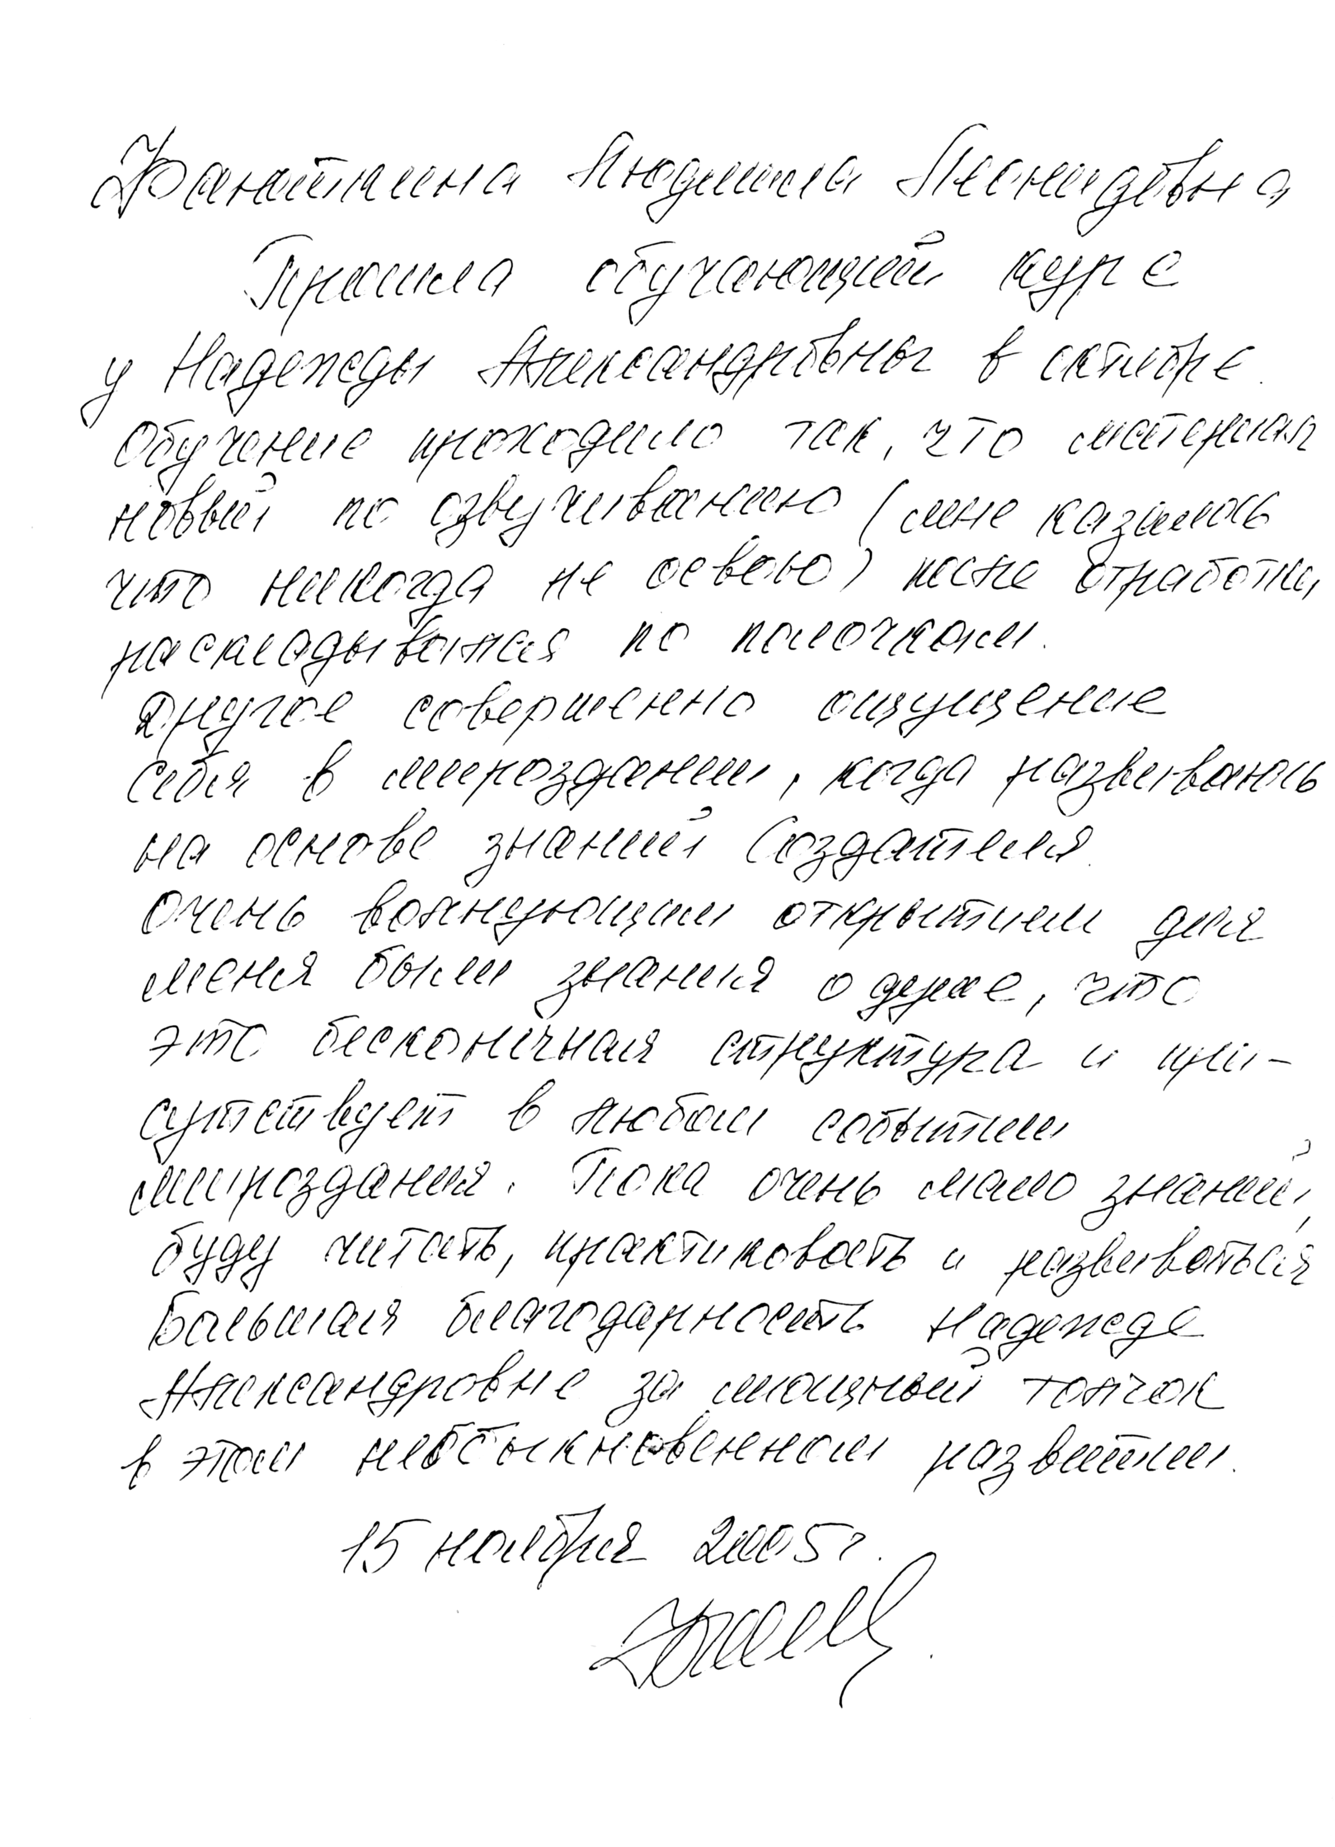 Людмила Леонидовна
Прошла обучающий курс
у Надежды Александровны в октябре.
Обучение проходило так, что материал
новый по озвучиванию (мне казалось
что никогда не освою) после отработки
раскладывался по полочкам.
Другое совершенно ощущение
себя в мироздании, когда развиваюсь
на основе знаний Создателя.
Очень волнующим открытием для
меня были знания о духе, что
это бесконечная структура и при-
сутствует в любом событии
мироздания. Пока очень мало знаний,
буду читать, практиковать и развиваться
Большая благодарность Надежде
Александровне за мощный толчок
в этом необыкновенном развитии.
15 ноября 2005г.